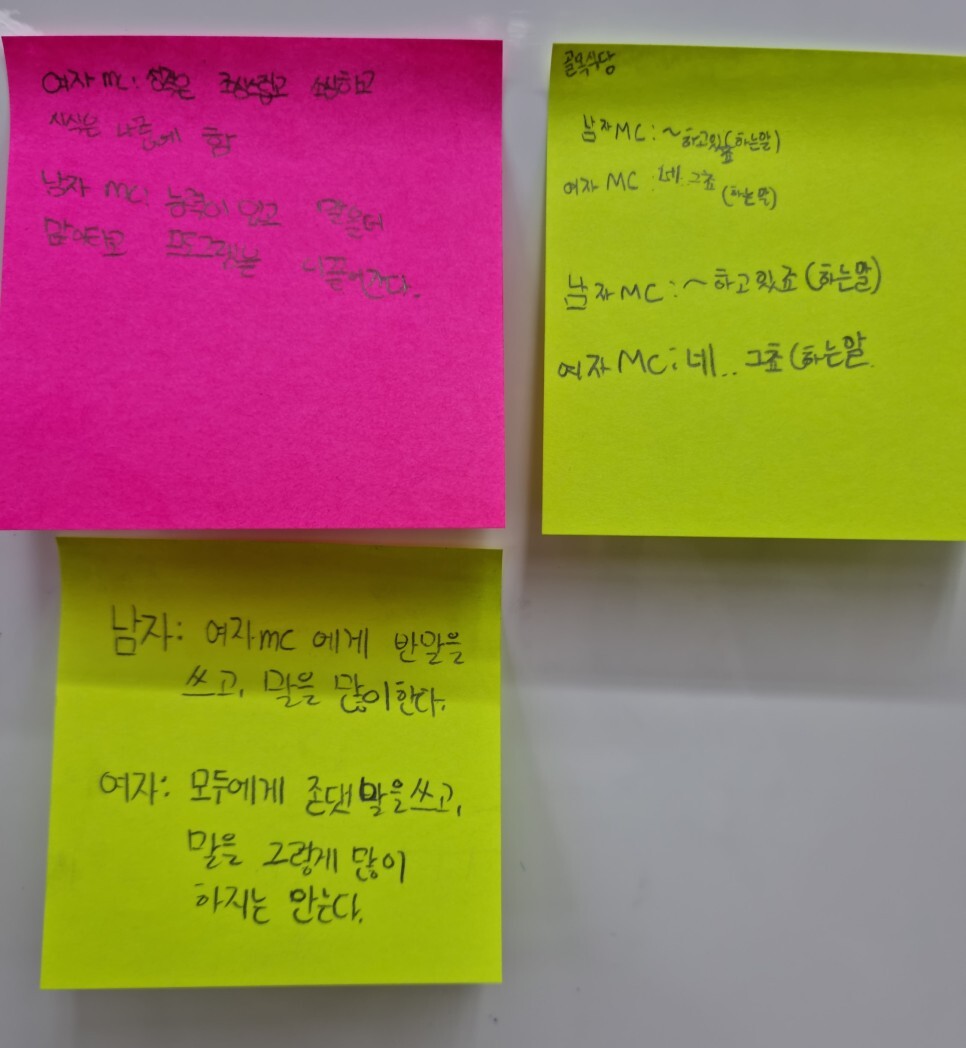 여자 mc: 성격은 조심스럽고 소심하고
시식은 나중에 함
남자 mc: 능력이 있고 말을더
많이하고 프로그램을 이끌어간다.
골목식당
남자MC: ~하고있죠(하는말)
여자MC: 네..그죠(하는말)
남자MC: ~하고있죠(하는말)
여자MC: 네.. 그죠(하는말
남자: 여자mc 에게 반말을
쓰고, 말을 많이한다.
여자: 모두에게 존댓말을쓰고,
말을 그렇게 많이
하지는 안는다.